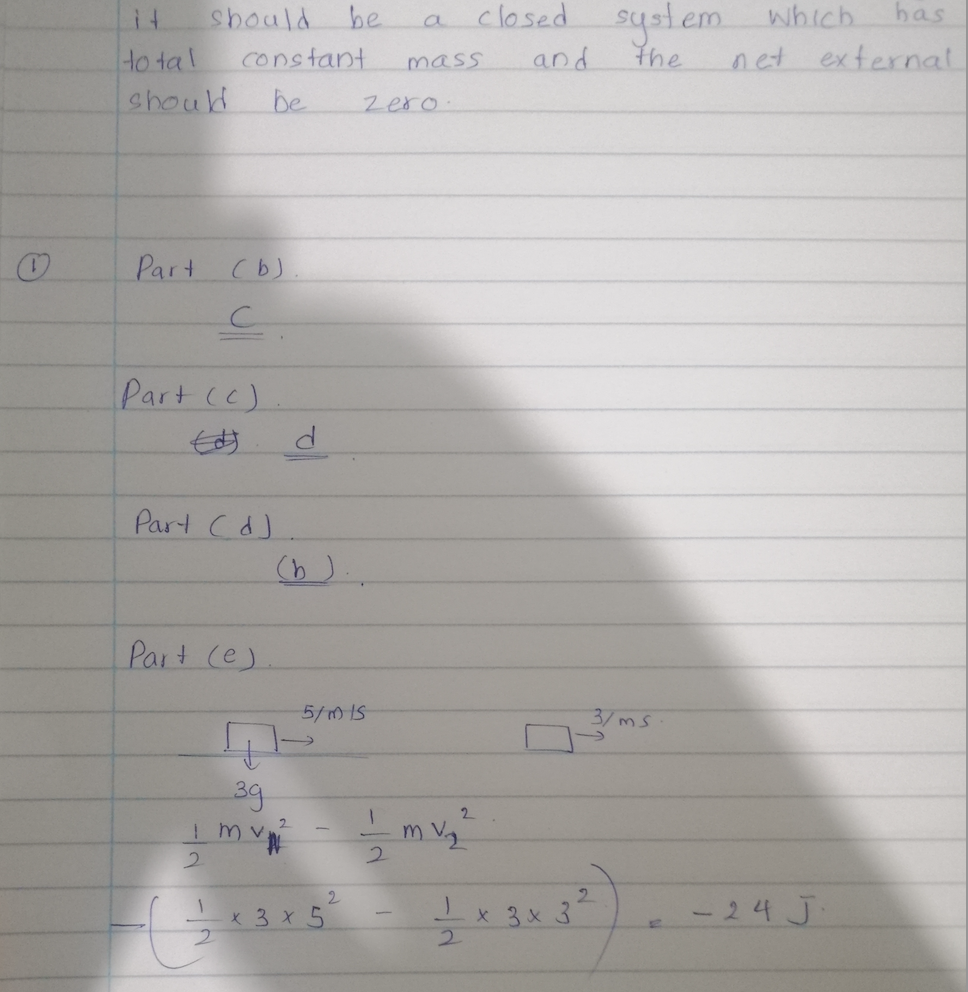 it should be a closed system which has
total constant mass and the net external
should be zero.
① Part (b).
C.
Part (c).
d.
Part (d).
(b).
Part (e).
5/m/s 3/ms.
3g
1/2 mv² - 1/2 mv₂².
-(1/2 × 3 × 5² - 1/2 × 3 × 3²) = -24 J.